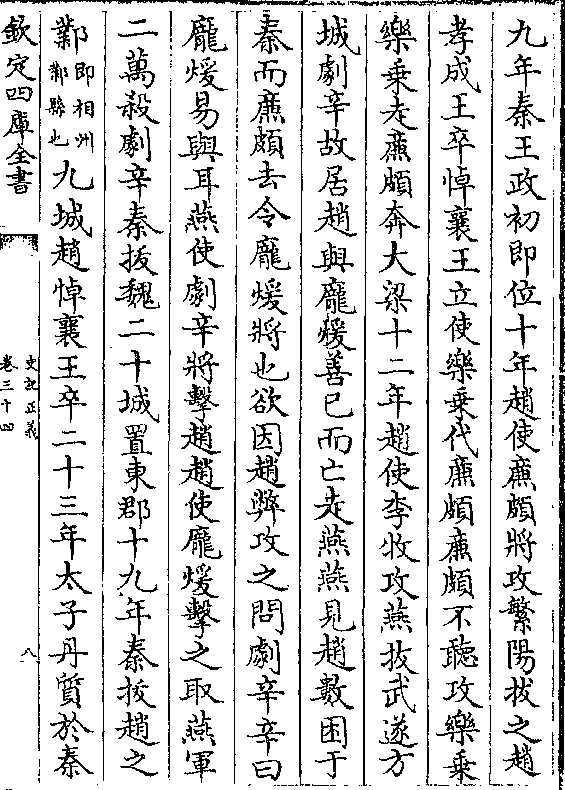 九年秦王政初即位十年趙使亷頗將攻繁陽拔之趙
孝成王卒悼襄王立使樂乗代亷頗亷頗不聽攻樂乗
樂乗走亷頗奔大梁十二年趙使李牧攻燕拔武遂方
城劇辛故居趙與龎煖善已而亡走燕燕見趙數困于
秦而亷頗去令龎煖將也欲因趙弊攻之問劇辛辛曰
龎煖易與耳燕使劇辛將擊趙趙使龎煖擊之取燕軍
二萬殺劇辛秦拔魏二十城置東郡十九年秦拔趙之
鄴即相州鄴縣也九城趙悼襄王卒二十三年太子丹質於秦
欽定四庫全書
史記正義
卷三十四
八